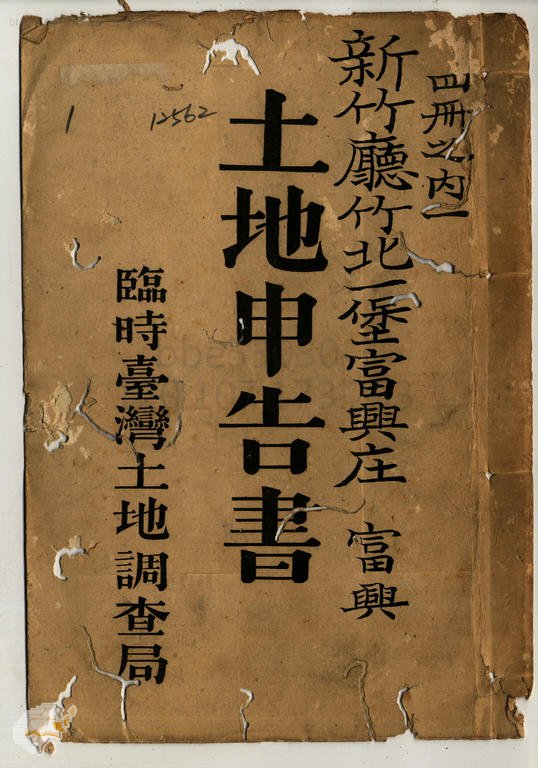 四冊之內一
新竹廳竹北一堡富興庄 富興
土地申告書
臨時臺灣土地調查局
1
12562